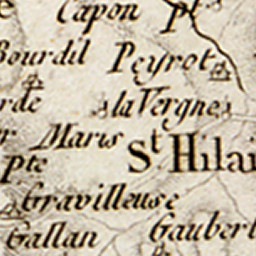 Capon Pt
Bourdil Peyrot
rde la Vergne
r Maris St Hilai
Pte
Gravilleuse
Gallan Gaubert